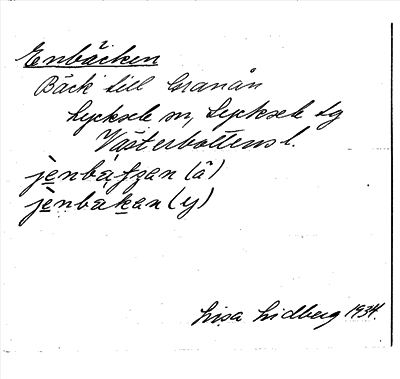 Enbäcken
Bäck till Granån
Lycksele sn, Lycksele tg
Västerbottens l.
jènbàfzan (ä)
jènbàkan (y)
Lisa Lidberg 1934.